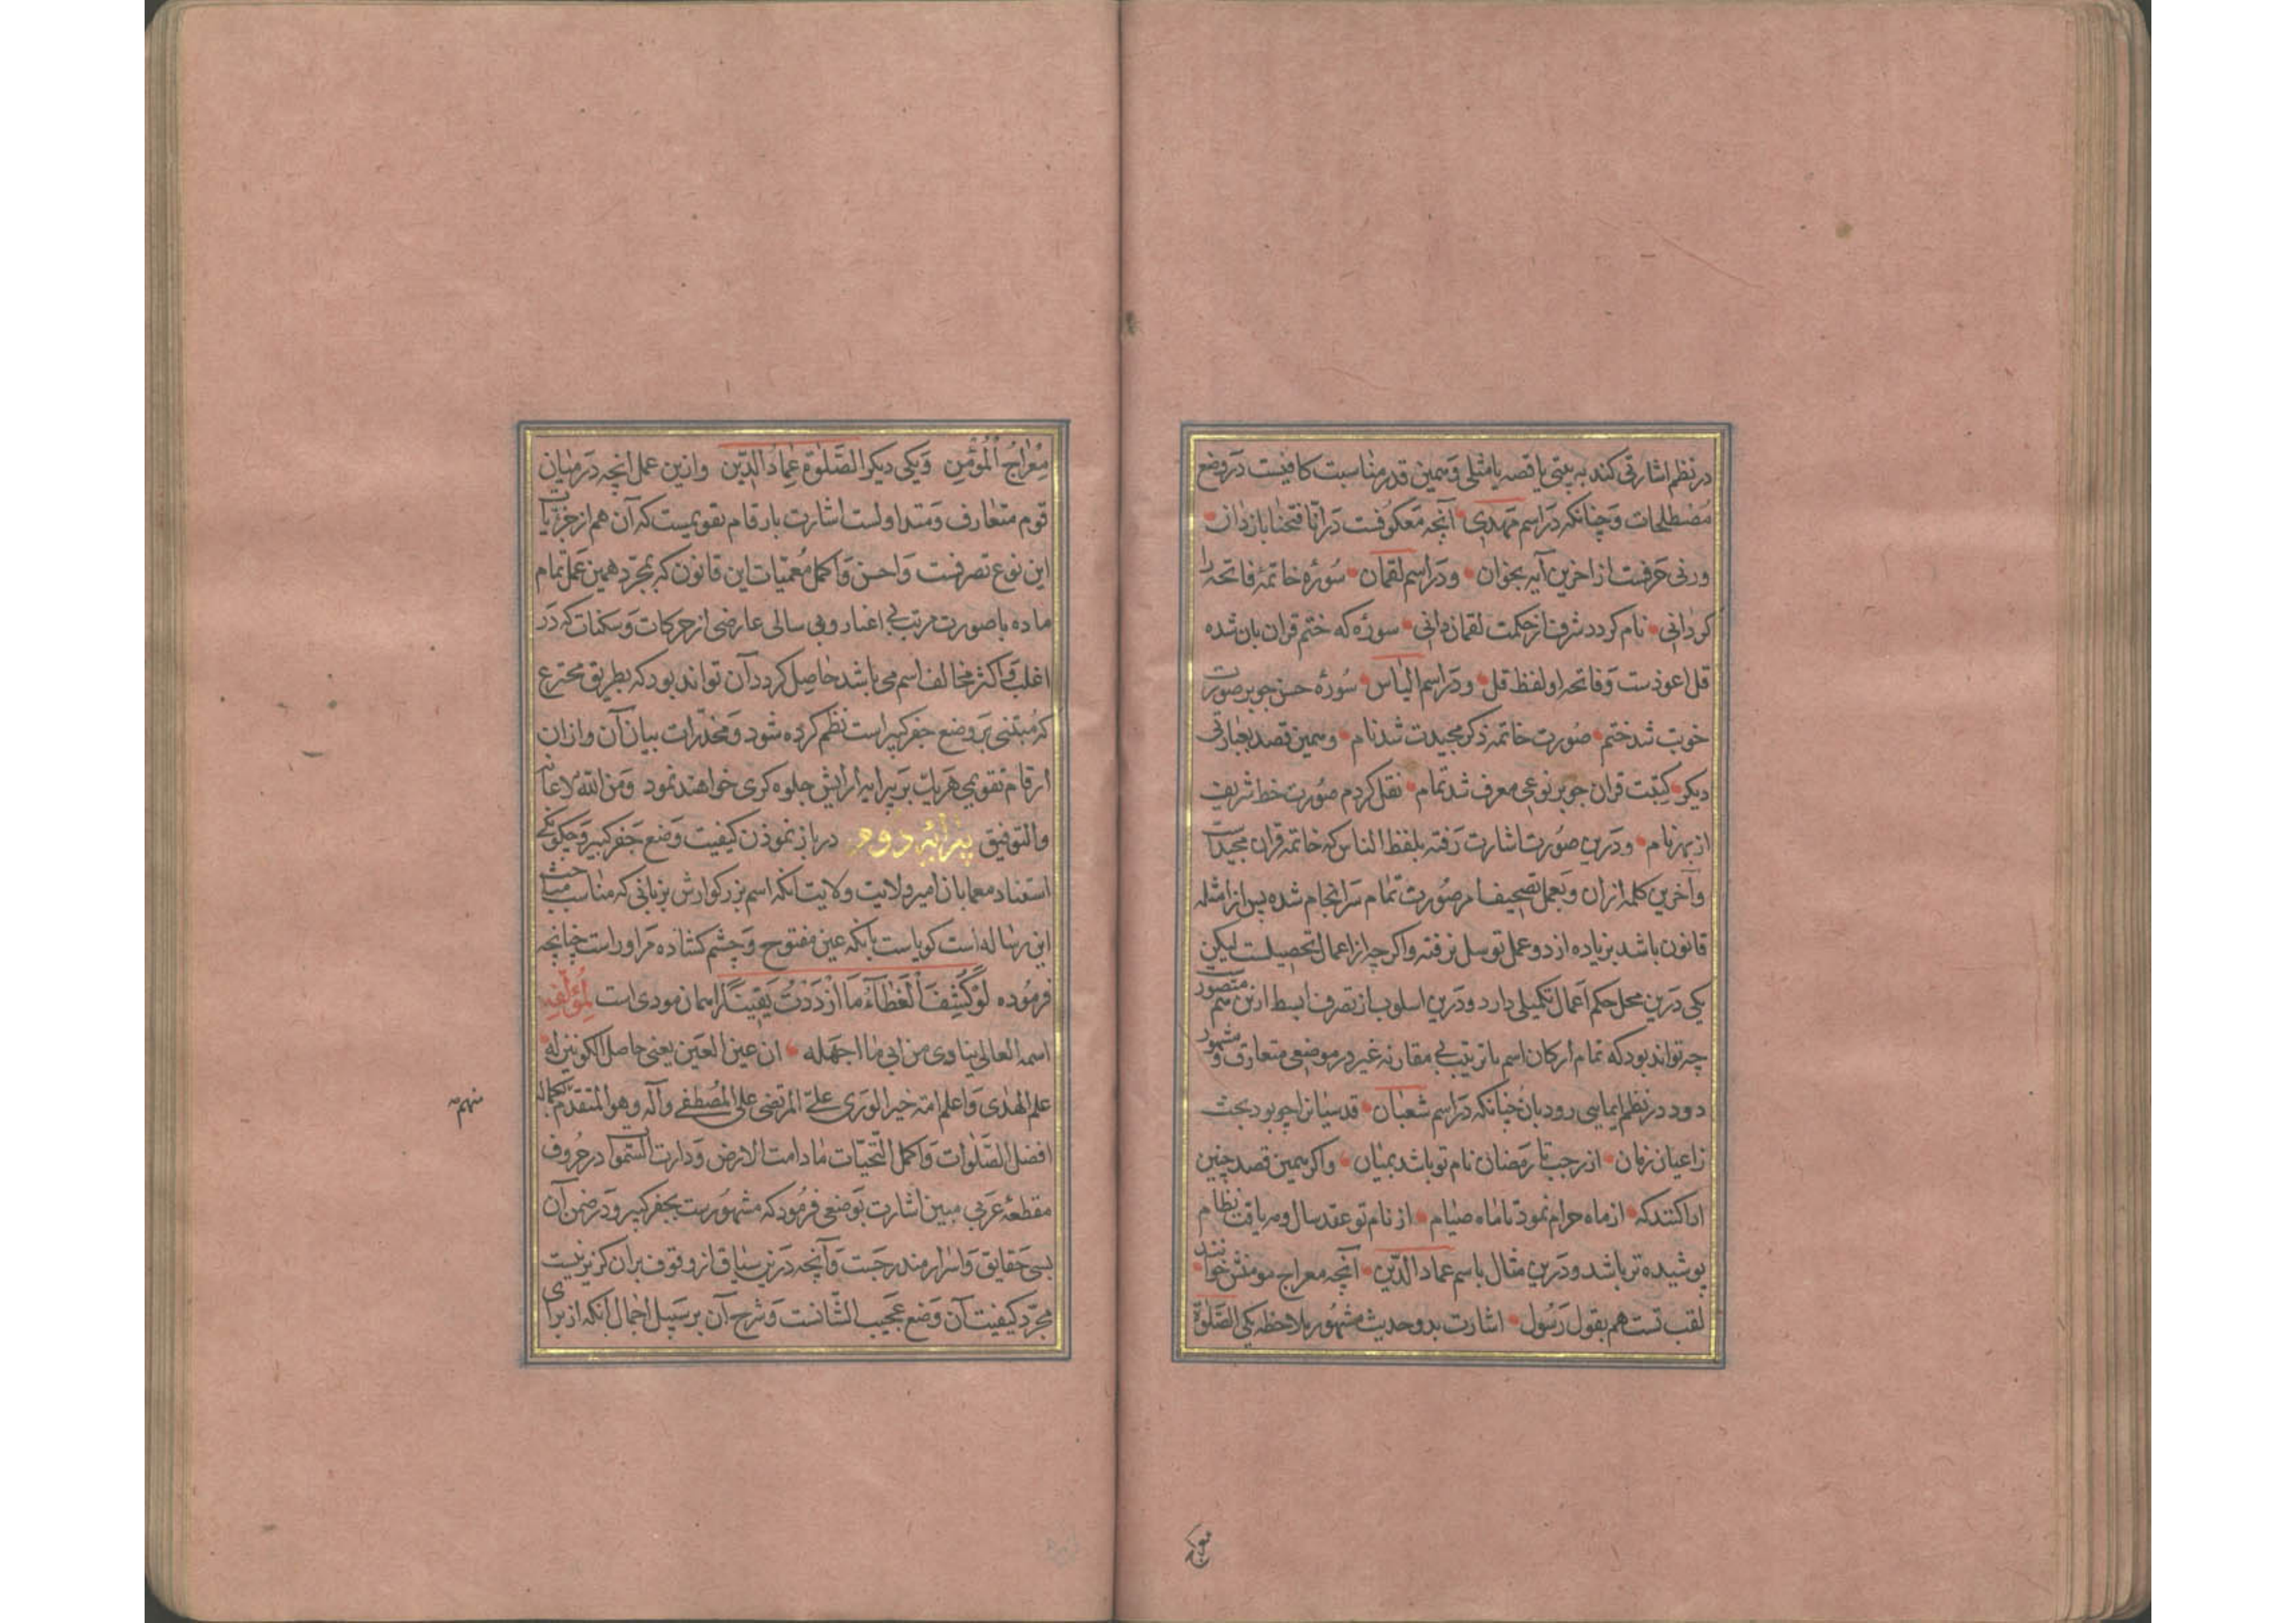 در نظم اشارتی کند به بیتی یا قصه یا مثلی و همین قدر مناسبت کافیست در وضع
مصطلحات و چنانکه در اسم مهدی آنچه معکوفست در انا فتحنا باز دان
ورنی حرفست از اخرین آیه بخوان و در اسم لقمان سوره خاتمه فاتحه را
کر دانی نام کردد شرف از حکمت لقمان دانی سوره که ختم قران بان شده
قل اعوذست و فاتحه او لفظ قل و در اسم الیاس سوره حسن جو بر صورت
خوب شد ختم صورت خاتمه ذکر مجیدت شد نام و همین قصد بعبارتی
دیکر کیتت قران جو بر نوعی معرف شد تمام نقل کردم صورت خط شریف
از بهر نام و درین صورت اشارت رفته بلفظ الناس که خاتمه قران مجیدست
و آخرین کلمه ازان و بعمل تصحیف امر صورت تمام سرانجام شده پس از امثله
قانون باشد بزیاده از دو عمل توسل نرفته و اکر چه از اعمال تحصیلست لیکن
یکی درین محل حکم اعمال تکمیلی دارد و درین اسلوب از تصرف ابسط ازین هم متصور
چه تواند بود که تمام ارکان اسم با ترتیب بی مقارنه غیر در موضعی متعارف و مشهور
دود در نظم ایمایی رود بان چنانکه در اسم شعبان قدسیانرا چو بود بحث
ز اعیان زمان از رجب تا رمضان نام تو باشد بمیان و اکر همین قصد چنین
ادا کنند که از ماه حرام نمود تا ماه صیام از نام تو عقد سال و مه یافت نظام
پوشیده تر باشد و درین مثال باسم عماد الدین آنچه معراج مومنش خوانند
لقب تست هم بقول رسول اشارت بدو حدیث مشهور بملاحظه یکی الصلوة
معراج المؤمن و یکی دیکر الصلوة عماد الدین و ازین عمل انچه در میان
قوم متعارف و متداولست اشارت بارقام تقویمست که آن هم از جزییات
این نوع تصرفست و احسن و اکمل معمیات این قانون که بمجرد همین عمل تمام
ماده با صورت مرتب بی اعتبار وفی سالی عارضی از حرکات و سکنات که در
اغلب و اکثر مخالف اسم می باشد حاصل کردد آن تواند بود که بطریق مخترع
که مبتنی بر وضع جفر کبیر است نظم کرده شود و مخدرات بیان آن و ازان
ارقام تقویمی هر یک بر پیرایه ارایش جلوه کری خواهند نمود و من الله الاعانه
والتوفیق پیرایه دوم در باز نمودن کیفیت وضع جفر کبیر و چکونکی
استناد معما بان امیر ولایت ولایت انکه اسم بزرکوارش بزبانی که مناسب مباحث
این رساله است کویاست بانکه عین مفتوح و چشم کشاده مر اوراست چنانچه
فرموده لو کشف الغطاء ما ازددت یقینا را همان مودی است لمؤلفه
اسمه العالی ینادی من ابی ما اجهله ان عین العین یعنی حاصل الکونین له
علم الهدی و اعلم امة خیر الوری علی المرتضی علی المصطفی وآله وهو المتقدم بکماله
افضل الصلوات و اکمل التحیات مادامت الارض ودارت السموات در حروف
مقطعه عربی مبین اشارت بوضعی فرمود که مشهورست بجفر کبیر و در ضمن آن
بسی حقایق و اسرار مندرجست و آنچه درین سیاق از وقوف بران کزیر نیست
مجرد کیفیت آن وضع عجیب الشانست و شرح آن بر سبیل اجمال آنکه از برای